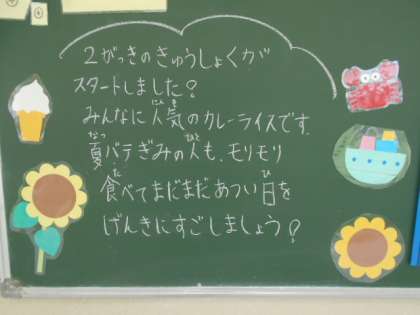 2がっきのきゅうしょくが
スタートしました?
みんなに人気のカレーライスです.
夏バテぎみの人も、モリモリ
食べてまだまだあつい日を
げんきにすごしましょう?